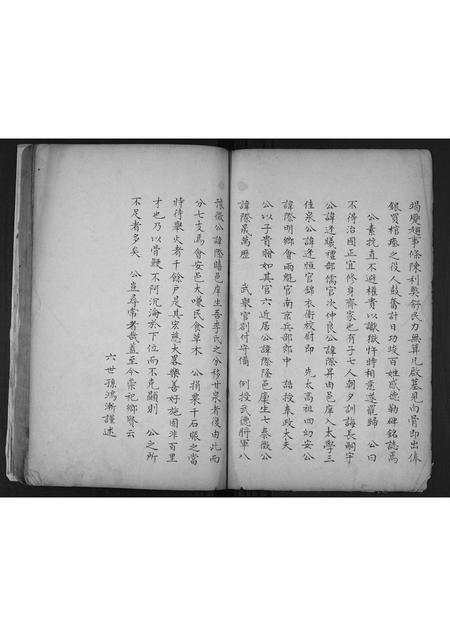 竭蹙趨事條陳利獘舒民力無算凡啟墓見白骨即出俸
銀買棺瘞之役人鼓奮計日功竣百姓感德勒碑銘誌焉
公素抗直不避權貴以讞獄忤特相意遂罷歸 公曰
不得治國正宜修身齊家也有子七人朝夕訓誨長嗣宇
公諱逢曦禮部儒官次仲良公諱際昇由邑庠入太學三
佳泉公諱逢恒官錦衣衛校尉即 先太高祖四幼安公
諱際明鄉會兩魁官南京兵部郎中 誥授奉政大夫
公以子貴贈如其官六近居公諱際隆邑廩生七泰徵公
諱際晟萬歷 武舉官劄付守備 例授武德將軍八
豫徵公諱際晴邑庠生吾李氏之分移甘泉者後由此而
分七支焉會安邑大嗛民食草木 公捐粟千石賑之當
時待舉火者千餘戶是其宏慈大畧樂善好施固非百里
才也乃以骨鯁不阿沉淪於下位而不克顯則 公之所
不足者多矣 公豈尋常者哉蓋至今崇祀鄉賢云
六世孫鴻漸謹述